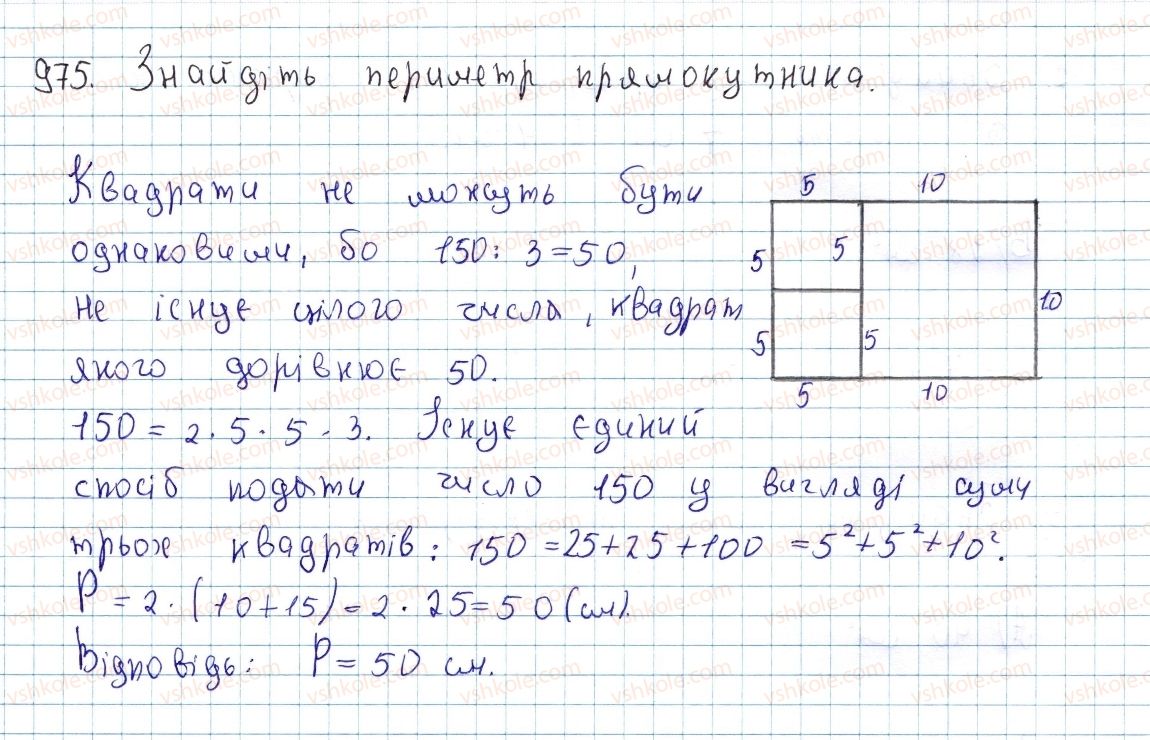 975. Знайдіть периметр прямокутника.
Квадрати не можуть бути
однаковими, бо 150 : 3 = 50,
не існує цілого числа, квадрат
якого дорівнює 50.
150 = 2 · 5 · 5 · 3. Існує єдиний
спосіб подати число 150 у вигляді суми
трьох квадратів: 150 = 25 + 25 + 100 = 5² + 5² + 10².
P = 2 · (10 + 15) = 2 · 25 = 50 (см).
Відповідь: P = 50 см.
5 10
5 5
10
5 5
5 10
vshkole.com